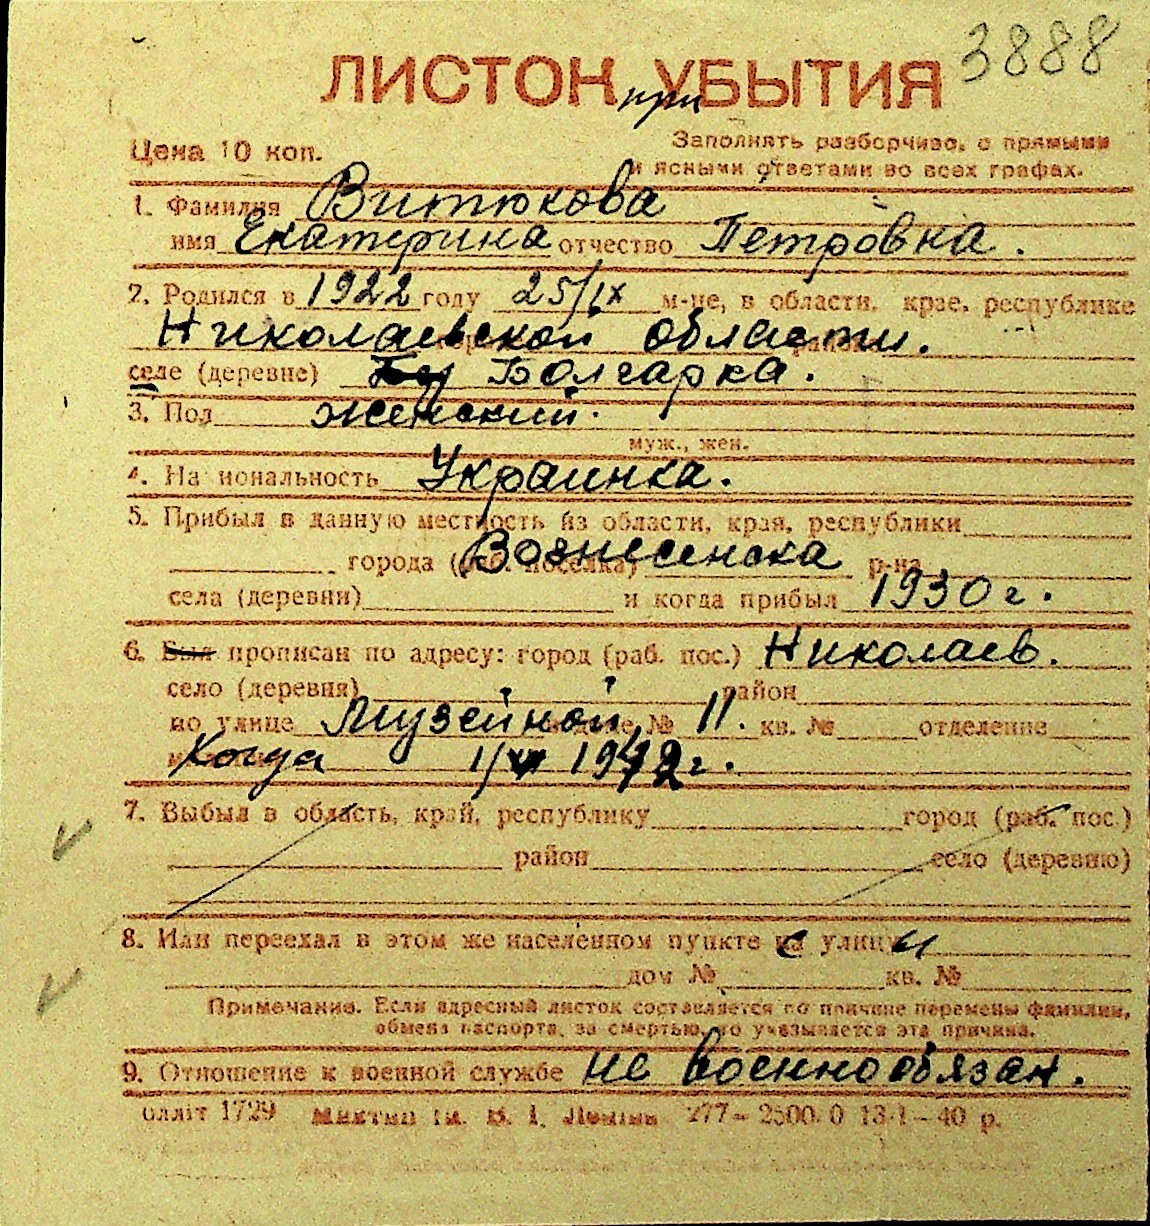 3888
ЛИСТОК при УБЫТИЯ
Цена 10 коп.
Заполнять разборчиво, с прямыми
и ясными ответами во всех графах.
1. Фамилия Витюкова
имя Екатерина отчество Петровна.
2. Родился в 1922 году 25/IX м-це, в области, крае, республике
Николаевской области.
селе (деревне) Болгарка.
3. Пол женский.
муж., жен.
4. На иональность Украинка.
5. Прибыл в данную местность из области, края, республики
города (раб. поселка) Вознесенска р-на
села (деревни) и когда прибыл 1930 г.
6. Был прописан по адресу: город (раб. пос.) Николаев.
село (деревня) район
по улице Музейной, № 11. кв. № отделение
Когда 1942 г.
7. Выбыл в область, край, республику город (раб. пос.)
район село (деревню)
8. Или переехал в этом же населенном пункте с улицы
дом № кв. №
Примечание. Если адресный листок составляется по причине перемены фамилии,
обмена паспорта, за смертью, то указывается эта причина.
9. Отношение к военной службе не военнообязан.
олліт 1729 277 – 2500. 0 13-1 – 40 р.